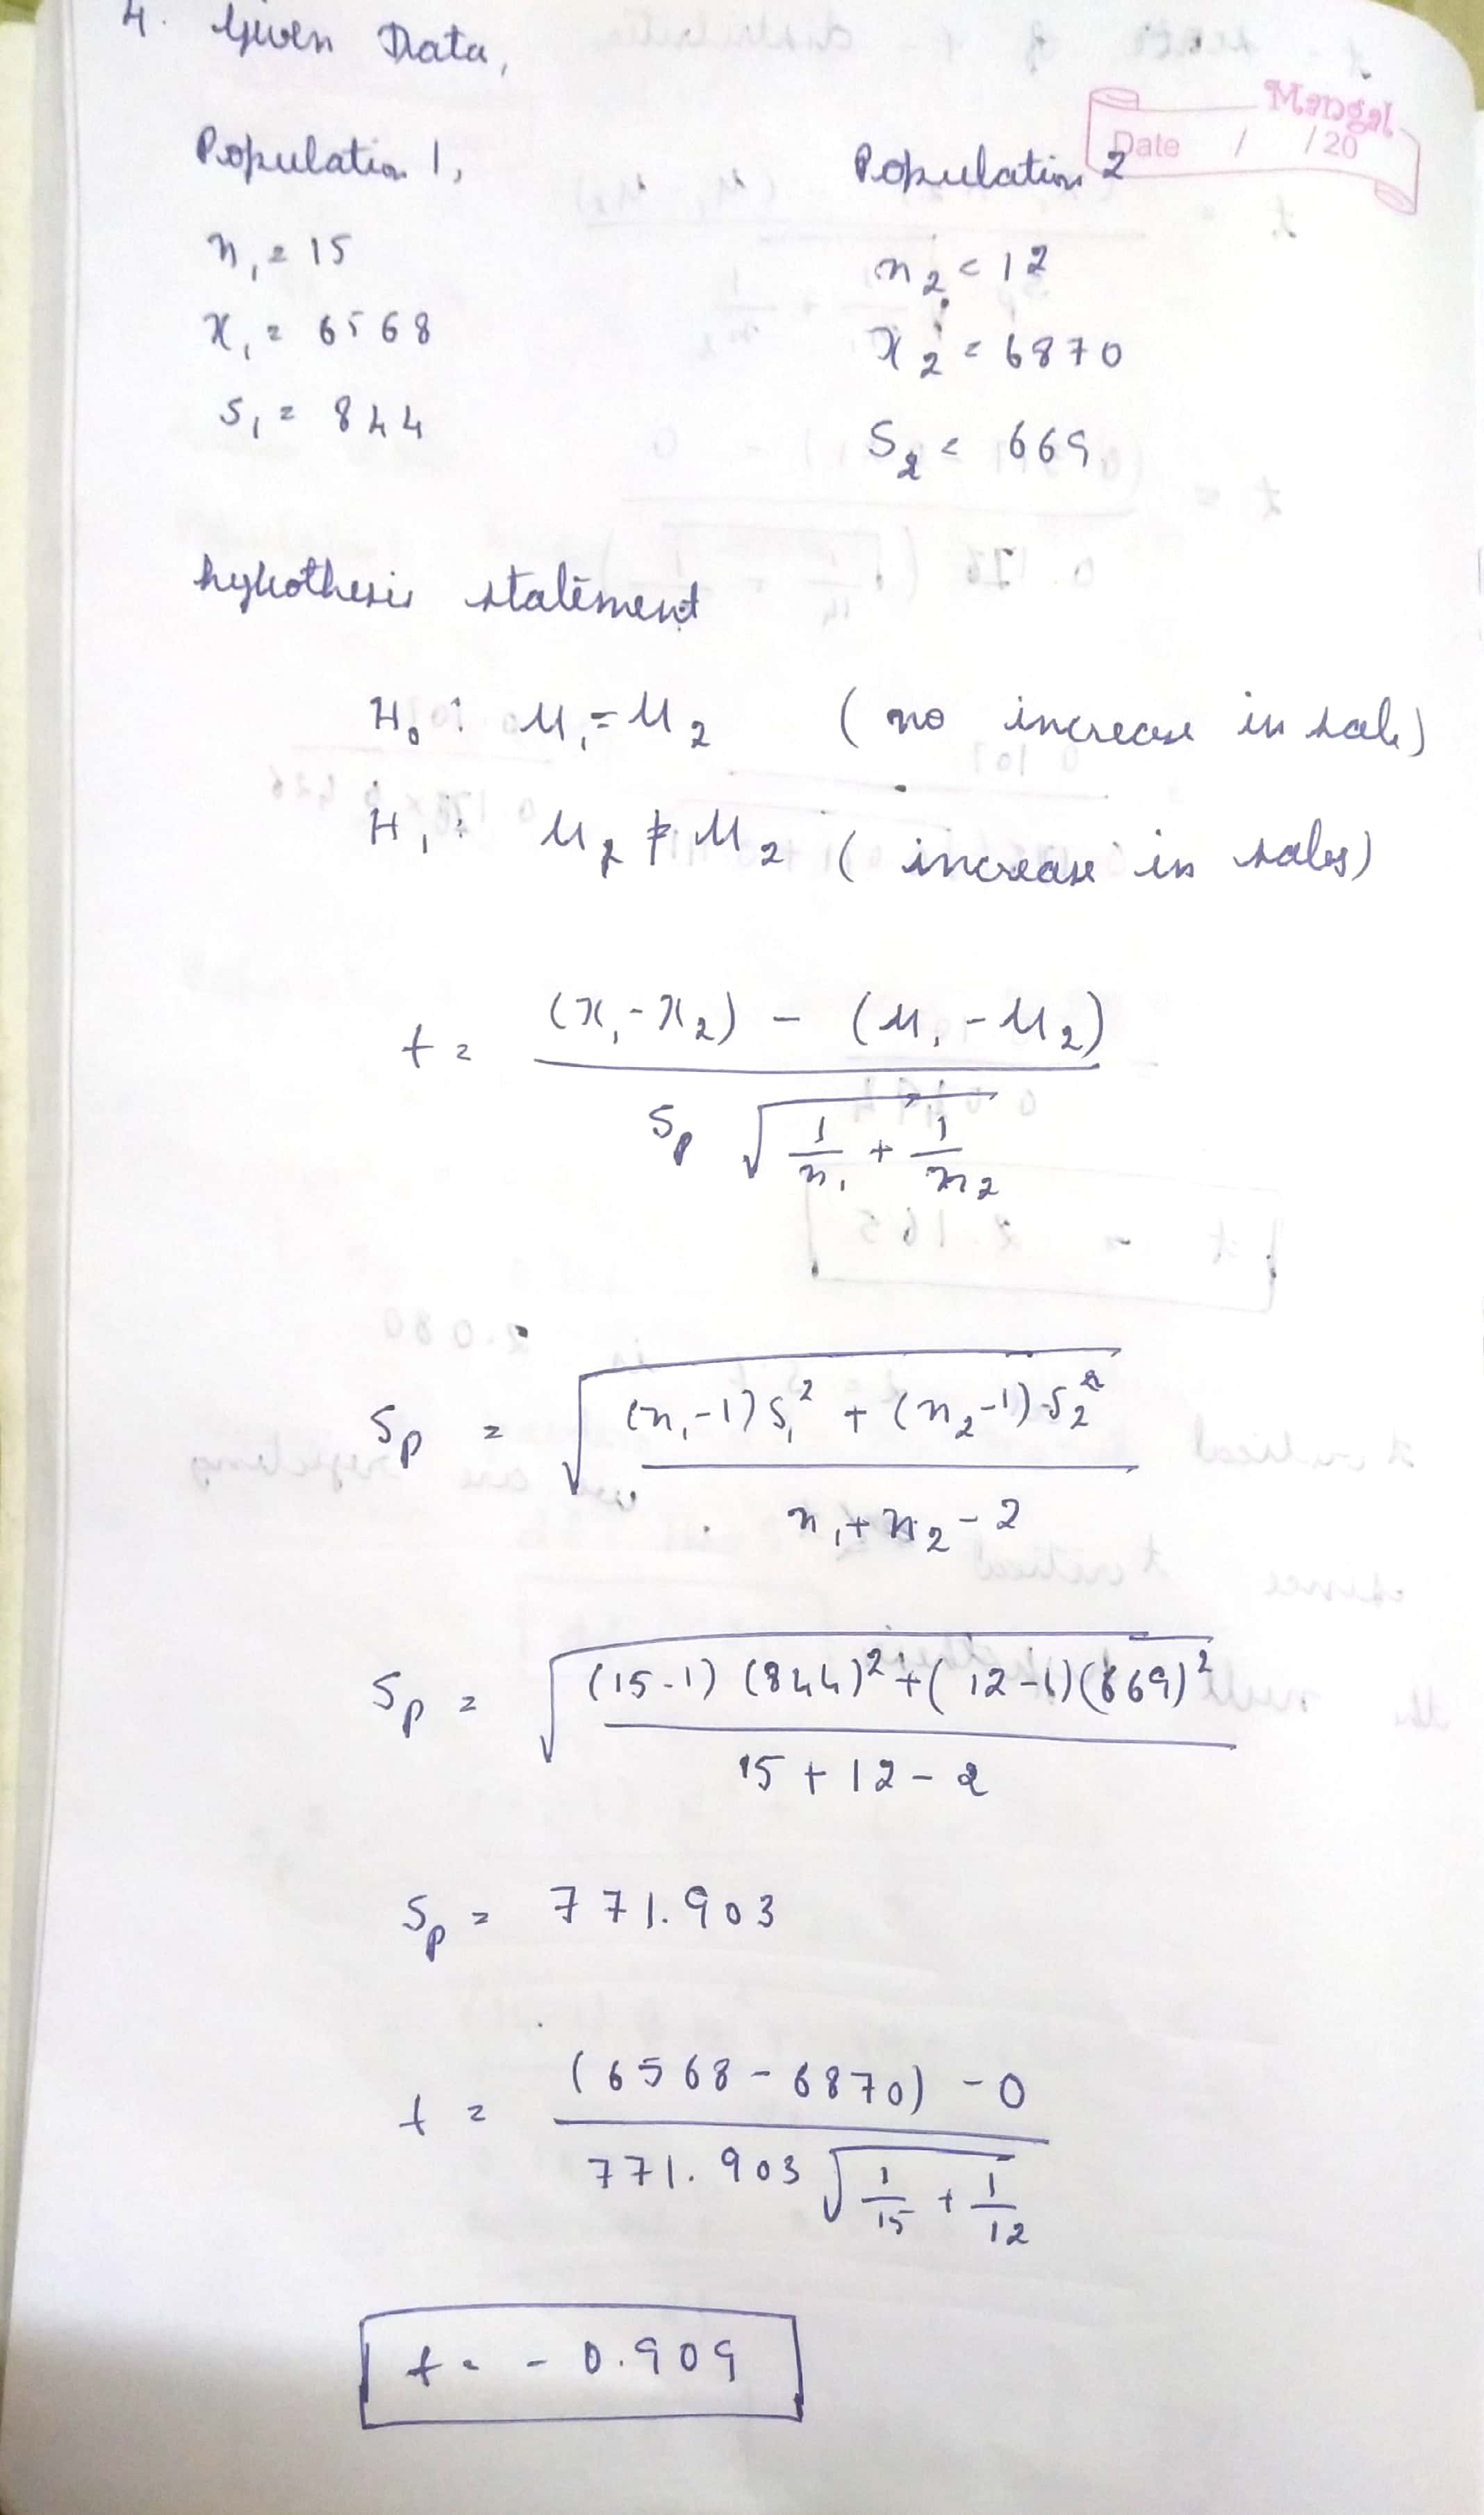 4. Given Data,
Mangal
Date / /20
Population 1,
Population 2
n₁ = 15
n₂ = 12
x₁ = 6568
x₂ = 6870
S₁ = 844
S₂ = 669
hypothesis statement
H₀ : μ₁ = μ₂ (no increase in sale)
H₁ : μ₂ ≠ μ₂ (increase in sales)
t = (x₁ - x₂) - (μ₁ - μ₂) / Sp √(1/n₁ + 1/n₂)
Sp = √((n₁-1)S₁² + (n₂-1)S₂² / n₁ + n₂ - 2)
Sp = √((15-1)(844)² + (12-1)(669)² / 15 + 12 - 2)
Sp = 771.903
t = (6568 - 6870) - 0 / 771.903 √(1/15 + 1/12)
t = - 0.909